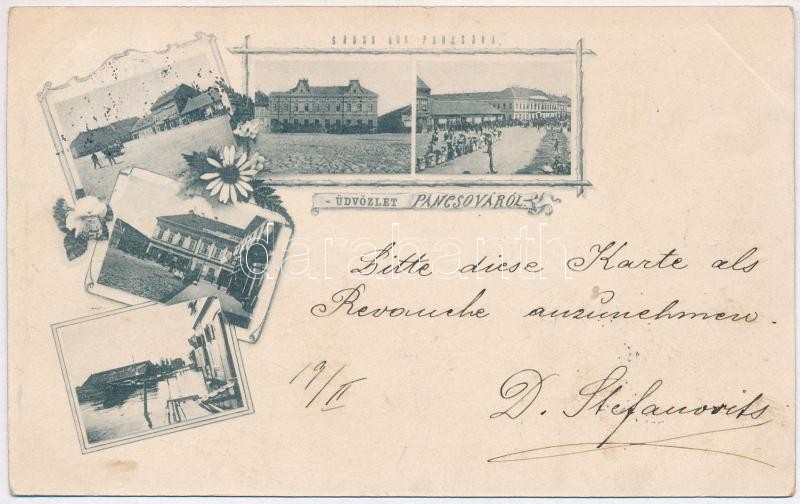 GRUSS AUS PANCSOVA
ÜDVÖZLET PANCSOVÁRÓL
darabanth
Bitte diese Karte als
Revanche anzunehmen.
19/II
D. Stefanovits